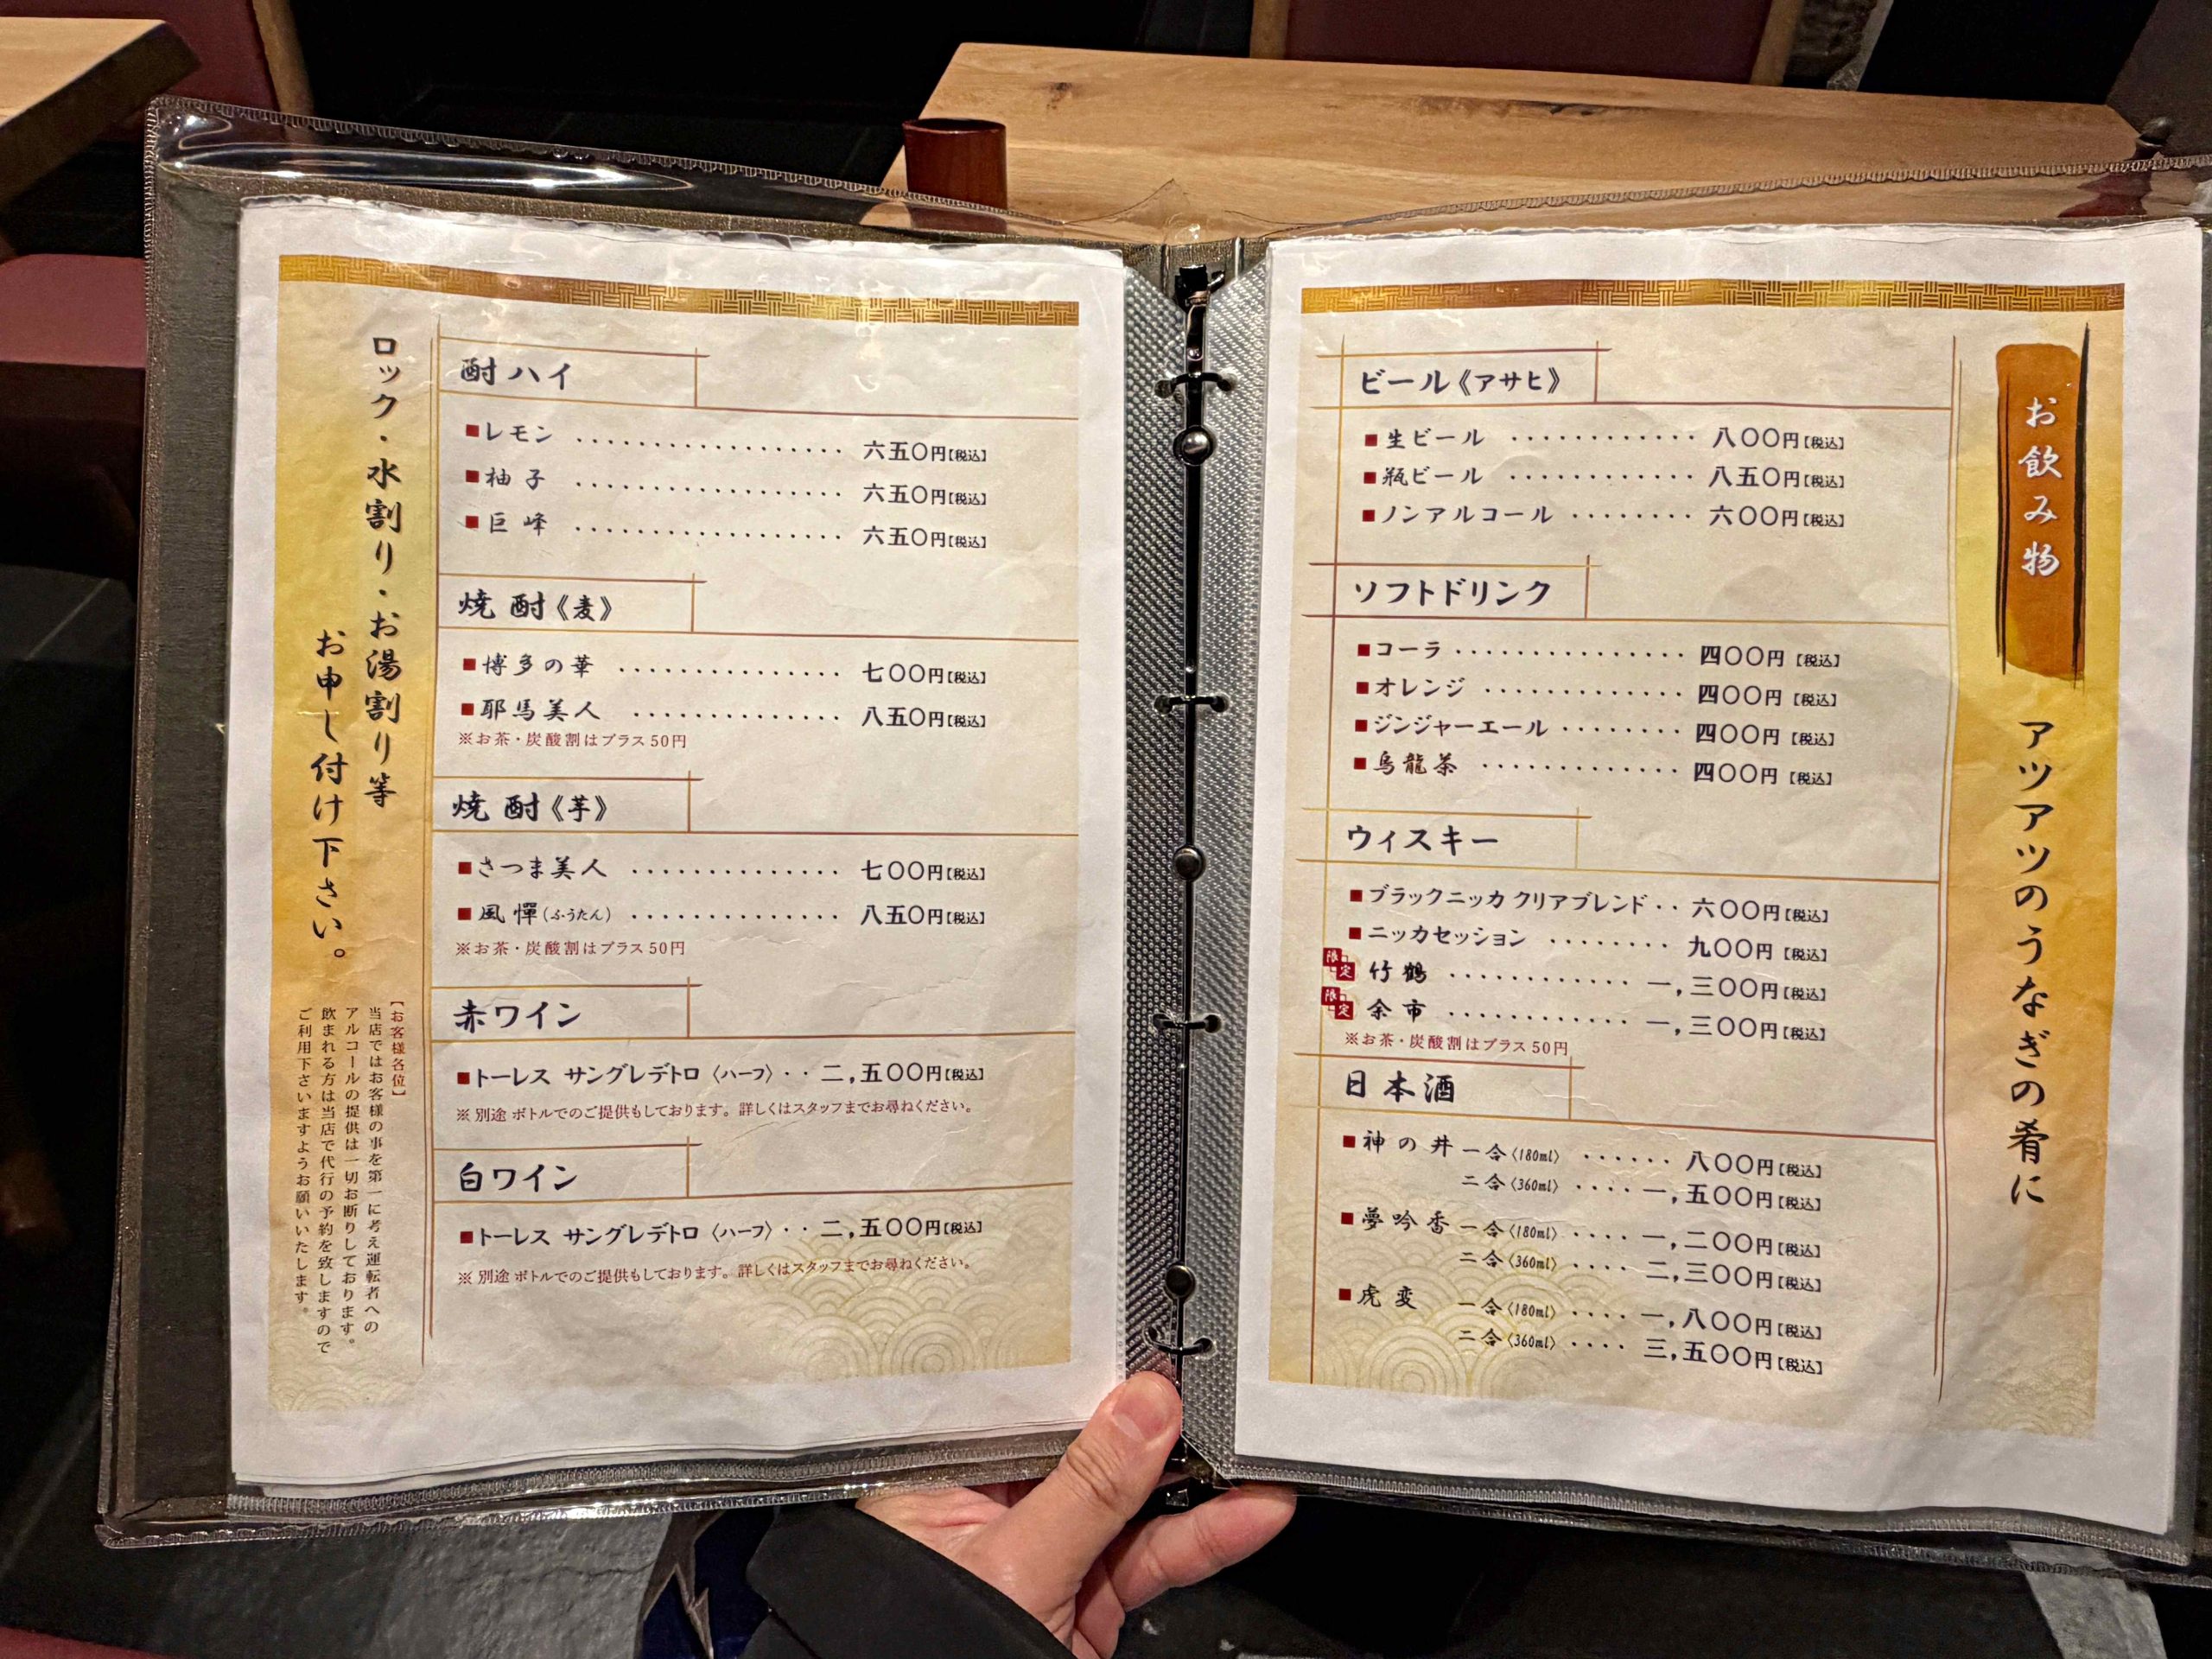 お飲み物
アツアツのうなぎの肴に
ビール《アサヒ》
■生ビール ············ 八〇〇円【税込】
■瓶ビール ············ 八五〇円【税込】
■ノンアルコール ········ 六〇〇円【税込】
ソフトドリンク
■コーラ ··············· 四〇〇円【税込】
■オレンジ ············· 四〇〇円【税込】
■ジンジャーエール ········ 四〇〇円【税込】
■烏龍茶 ············· 四〇〇円【税込】
ウィスキー
■ブラックニッカ クリアブレンド ·· 六〇〇円【税込】
■ニッカセッション ········ 九〇〇円【税込】
限定 竹鶴 ············ 一,三〇〇円【税込】
限定 余市 ············ 一,三〇〇円【税込】
※お茶・炭酸割はプラス50円
日本酒
■神の井 一合〈180ml〉 ······ 八〇〇円【税込】
二合〈360ml〉 ···· 一,五〇〇円【税込】
■夢吟香 一合〈180ml〉 ···· 一,二〇〇円【税込】
二合〈360ml〉 ···· 二,三〇〇円【税込】
■虎変 一合〈180ml〉 ···· 一,八〇〇円【税込】
二合〈360ml〉 ···· 三,五〇〇円【税込】
酎ハイ
■レモン ················· 六五〇円【税込】
■柚子 ················· 六五〇円【税込】
■巨峰 ················· 六五〇円【税込】
焼酎《麦》
■博多の華 ·············· 七〇〇円【税込】
■耶馬美人 ·············· 八五〇円【税込】
※お茶・炭酸割はプラス50円
焼酎《芋》
■さつま美人 ·············· 七〇〇円【税込】
■風憚(ふうたん) ·············· 八五〇円【税込】
※お茶・炭酸割はプラス50円
赤ワイン
■トーレス サングレデトロ〈ハーフ〉·· 二,五〇〇円【税込】
※別途 ボトルでのご提供もしております。詳しくはスタッフまでお尋ねください。
白ワイン
■トーレス サングレデトロ〈ハーフ〉·· 二,五〇〇円【税込】
※別途 ボトルでのご提供もしております。詳しくはスタッフまでお尋ねください。
ロック・水割り・お湯割り等
お申し付け下さい。
【お客様各位】
当店ではお客様の事を第一に考え運転者への
アルコールの提供は一切お断りしております。
飲まれる方は当店で代行の予約を致しますので
ご利用下さいますようお願いいたします。